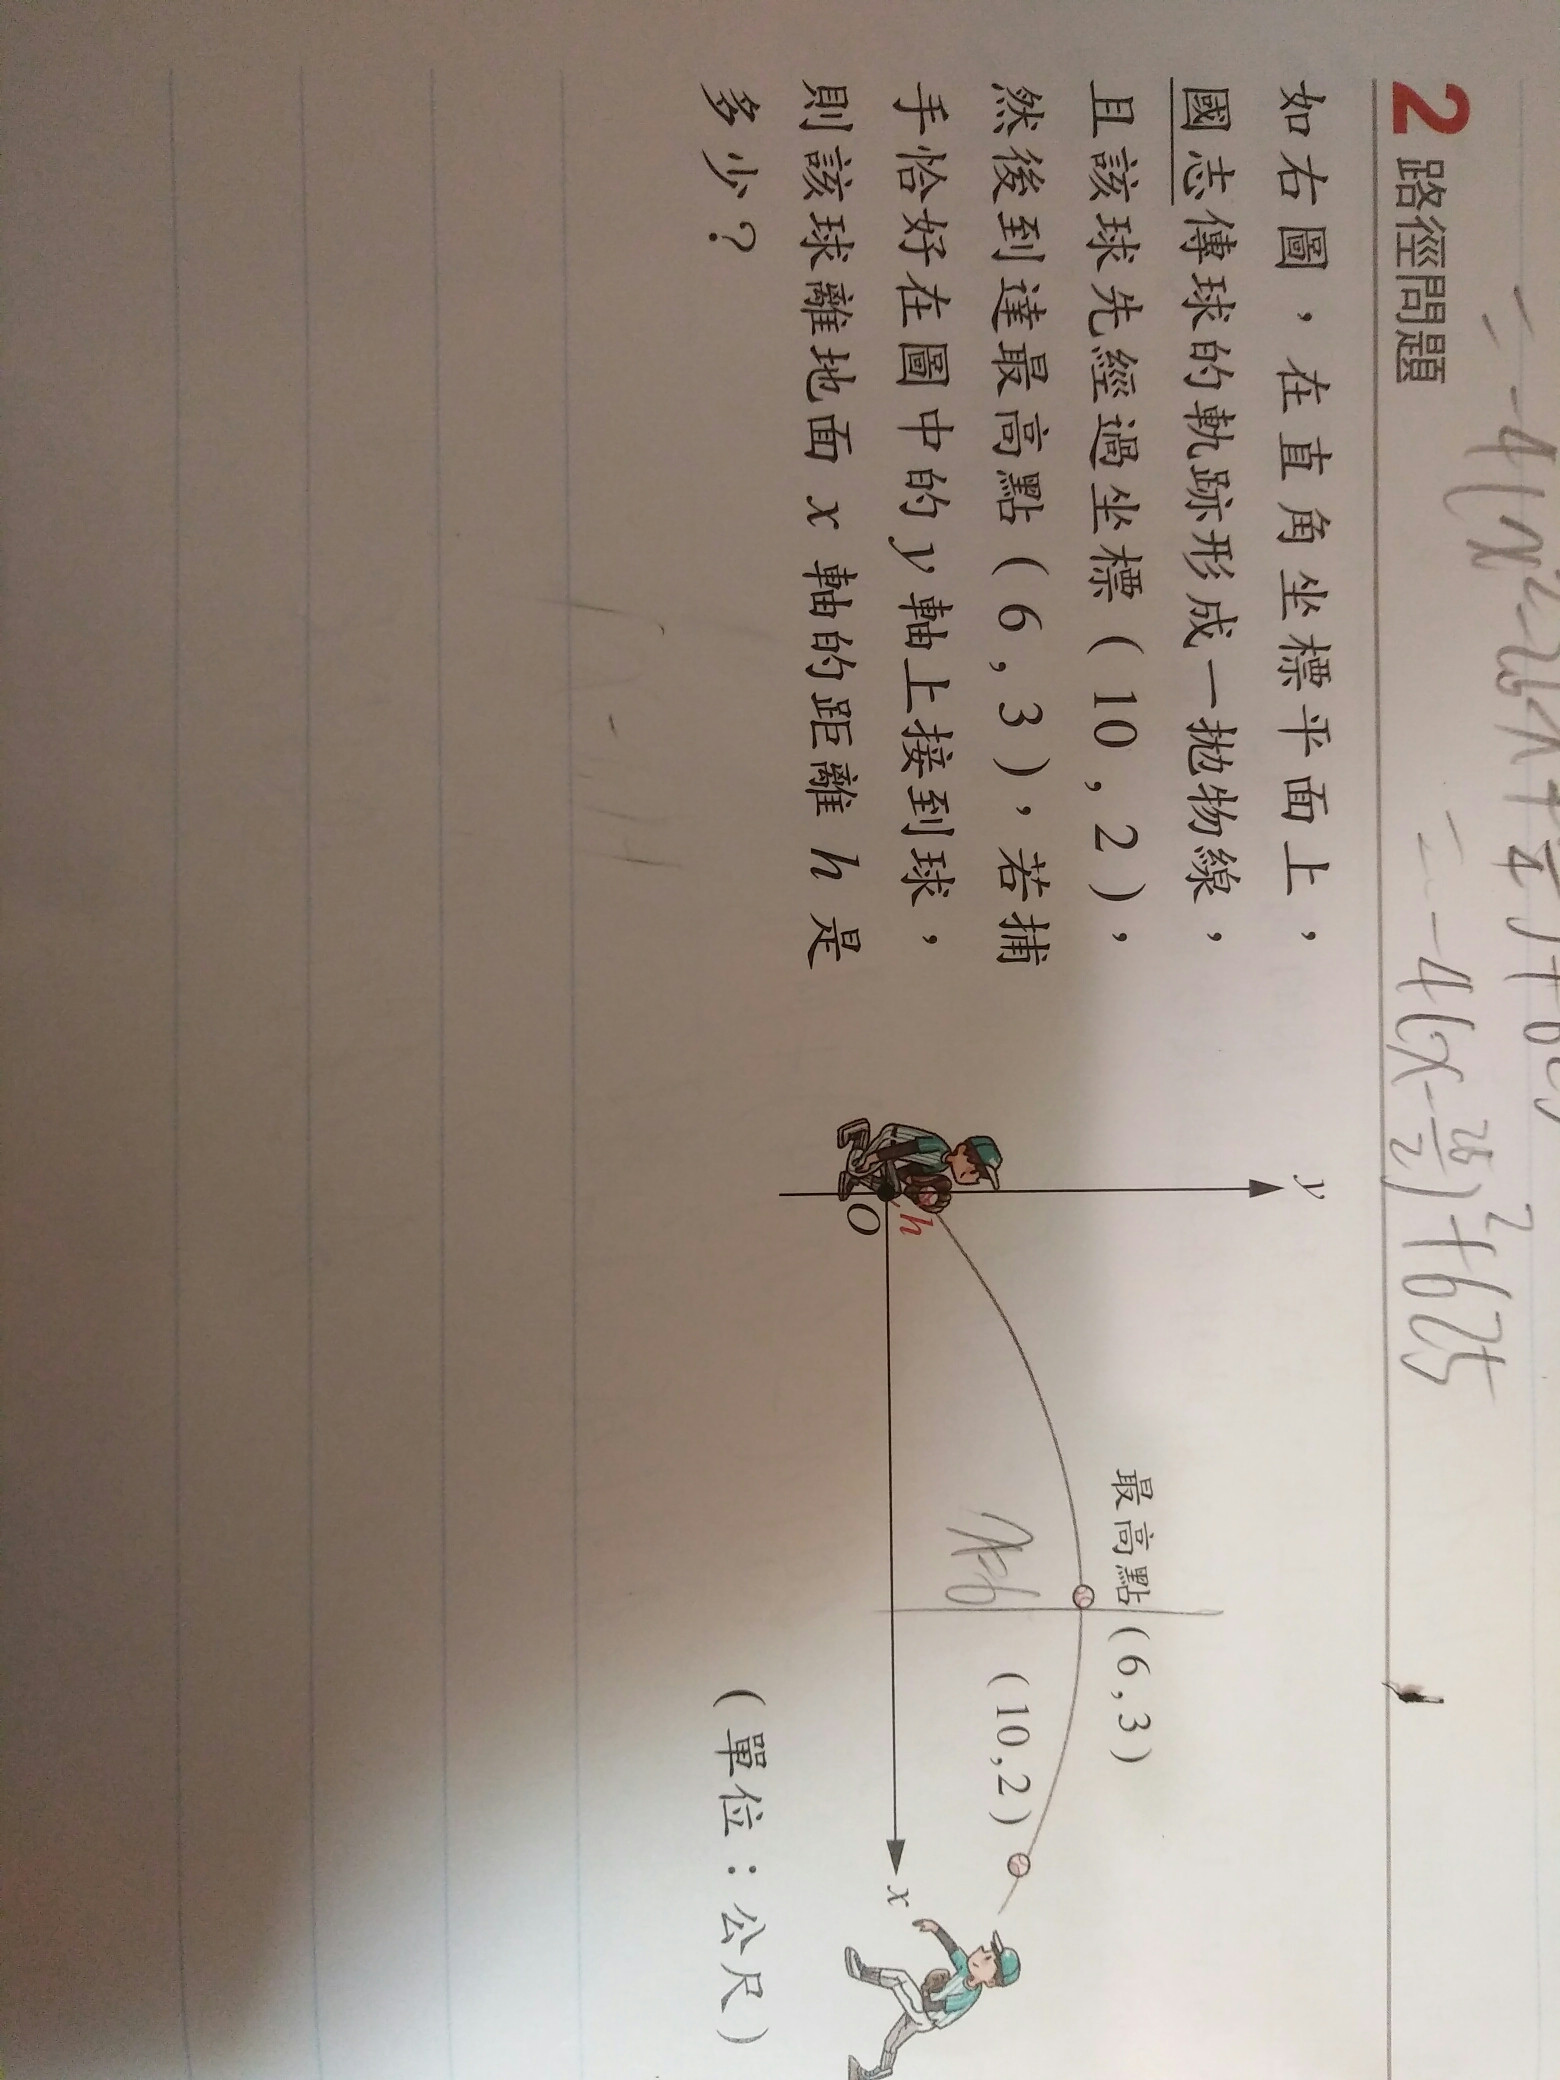 = -4(x²-26x+
= -4(x-26/2)²+625
2 路徑問題
如右圖，在直角坐標平面上，
國志傳球的軌跡形成一拋物線，
且該球先經過坐標(10,2)，
然後到達最高點(6,3)，若捕
手恰好在圖中的y軸上接到球，
則該球離地面x軸的距離h是
多少？
y
最高點(6,3)
(10,2)
x=6
h
O
x
(單位：公尺)